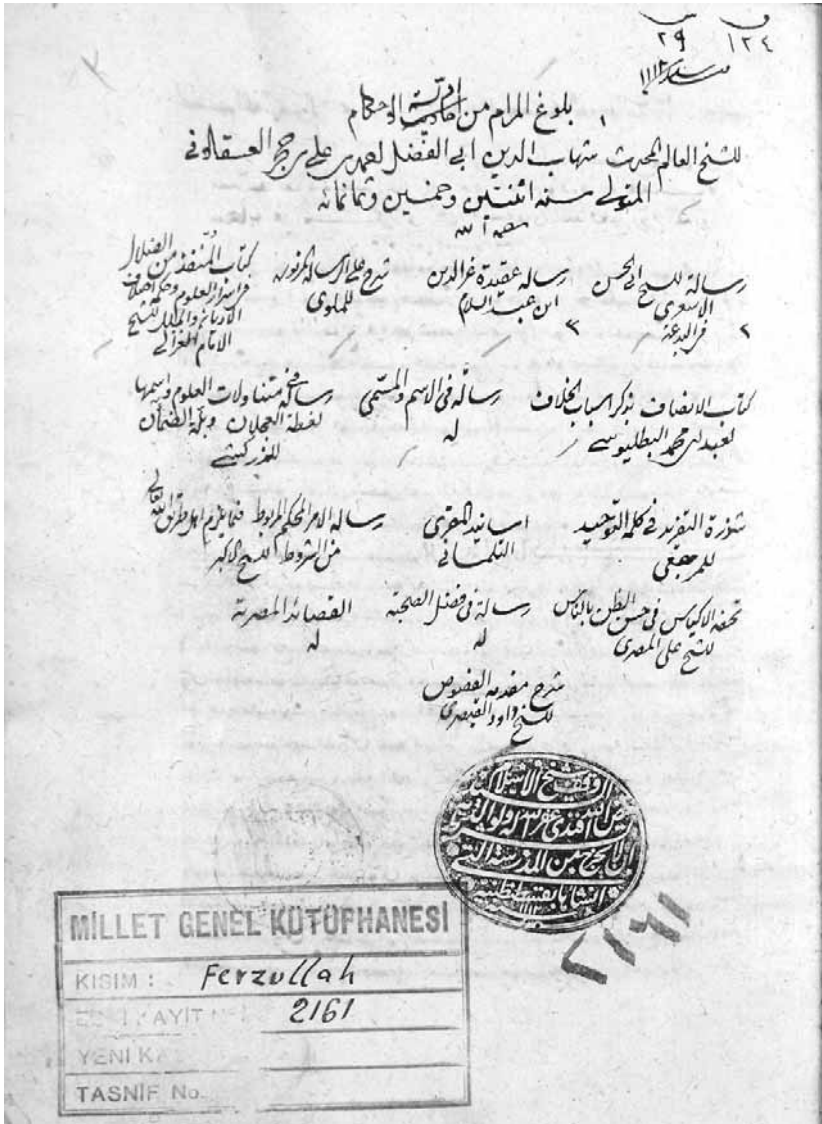 ق س
١٢٤ ٢٩
١١١٢
بلوغ المرام من ادلة احاديث الاحكام
للشيخ العالم المحدث شهاب الدين ابى الفضل احمد بن على بن حجر العسقلانى
المتوفى سنة اثنتين وخمسين وثمانمائه
رحمه الله
رسالة للشيخ ابى الحسن الاشعرى فى البدعة ٢
رساله عقيدة عز الدين ابن عبد السلام ٣
شرح على الرساله المزبورة للملوى
كتاب المنقذ من الضلال فى اسرار العلوم الاديان والملل للشيخ الامام الغزالى
كتاب الانصاف بذكر اسباب الخلاف لعبد الله بن محمد البطليوسى
رسالة فى الاسم والمسمى له
رسالة فى متناولات العلوم واسمها لقطة العجلان وبلة الظمآن للزركشى
شذرة التفريد فى كلمة التوحيد
اسانيد المقرى التلمسانى
رسالة الامر المحكم المربوط فيما يلزم اهل طريق الله تعالى من الشروط للشيخ الاكبر
تحفة الاكياس فى حسن الظن بالناس للشيخ على المصرى
رسالة فى فضل الصحبة له
القصائد المصرية له
شرح مقدمه الفصوص للشيخ داود القيصرى
٢١٦١
MİLLET GENEL KÜTÜPHANESİ
KISIM : Feyzullah
KAYIT 2161
YENİ KA
TASNİF No.